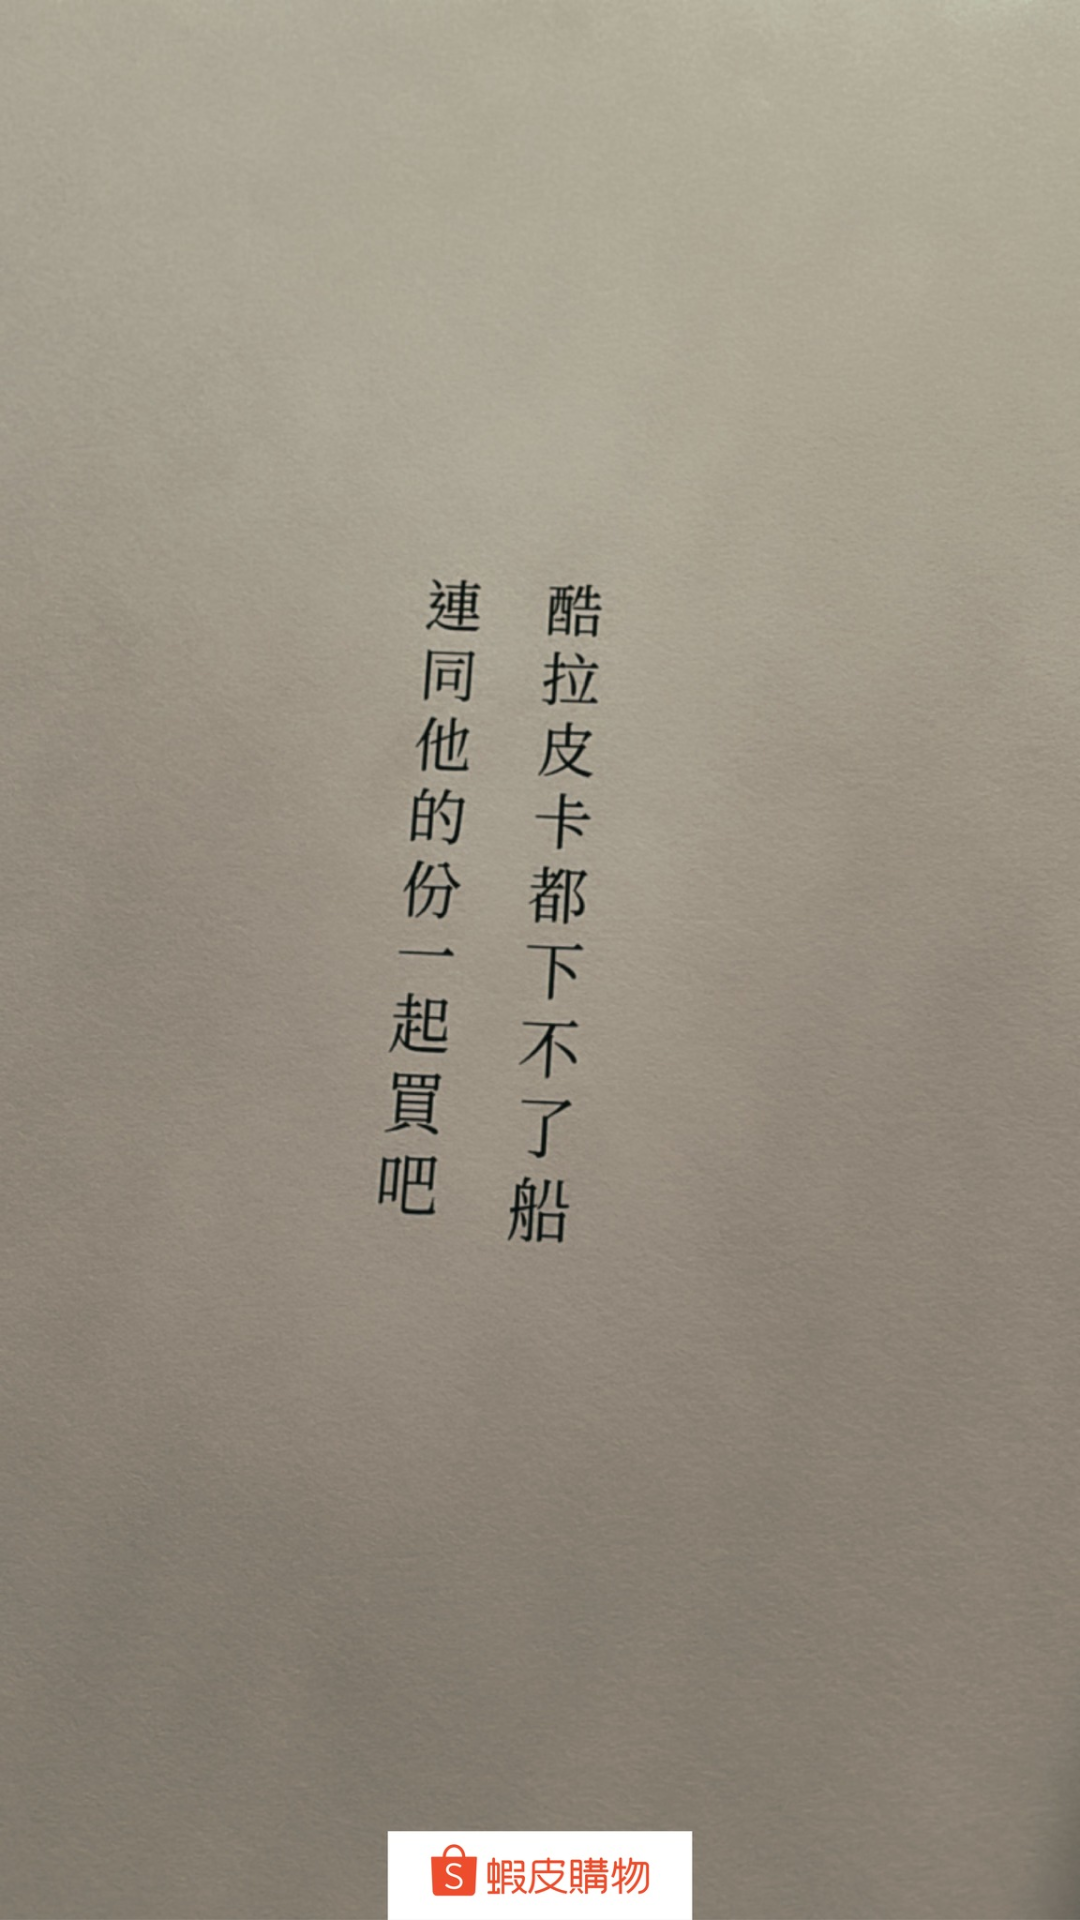 酷拉皮卡都下不了船
連同他的份一起買吧
蝦皮購物